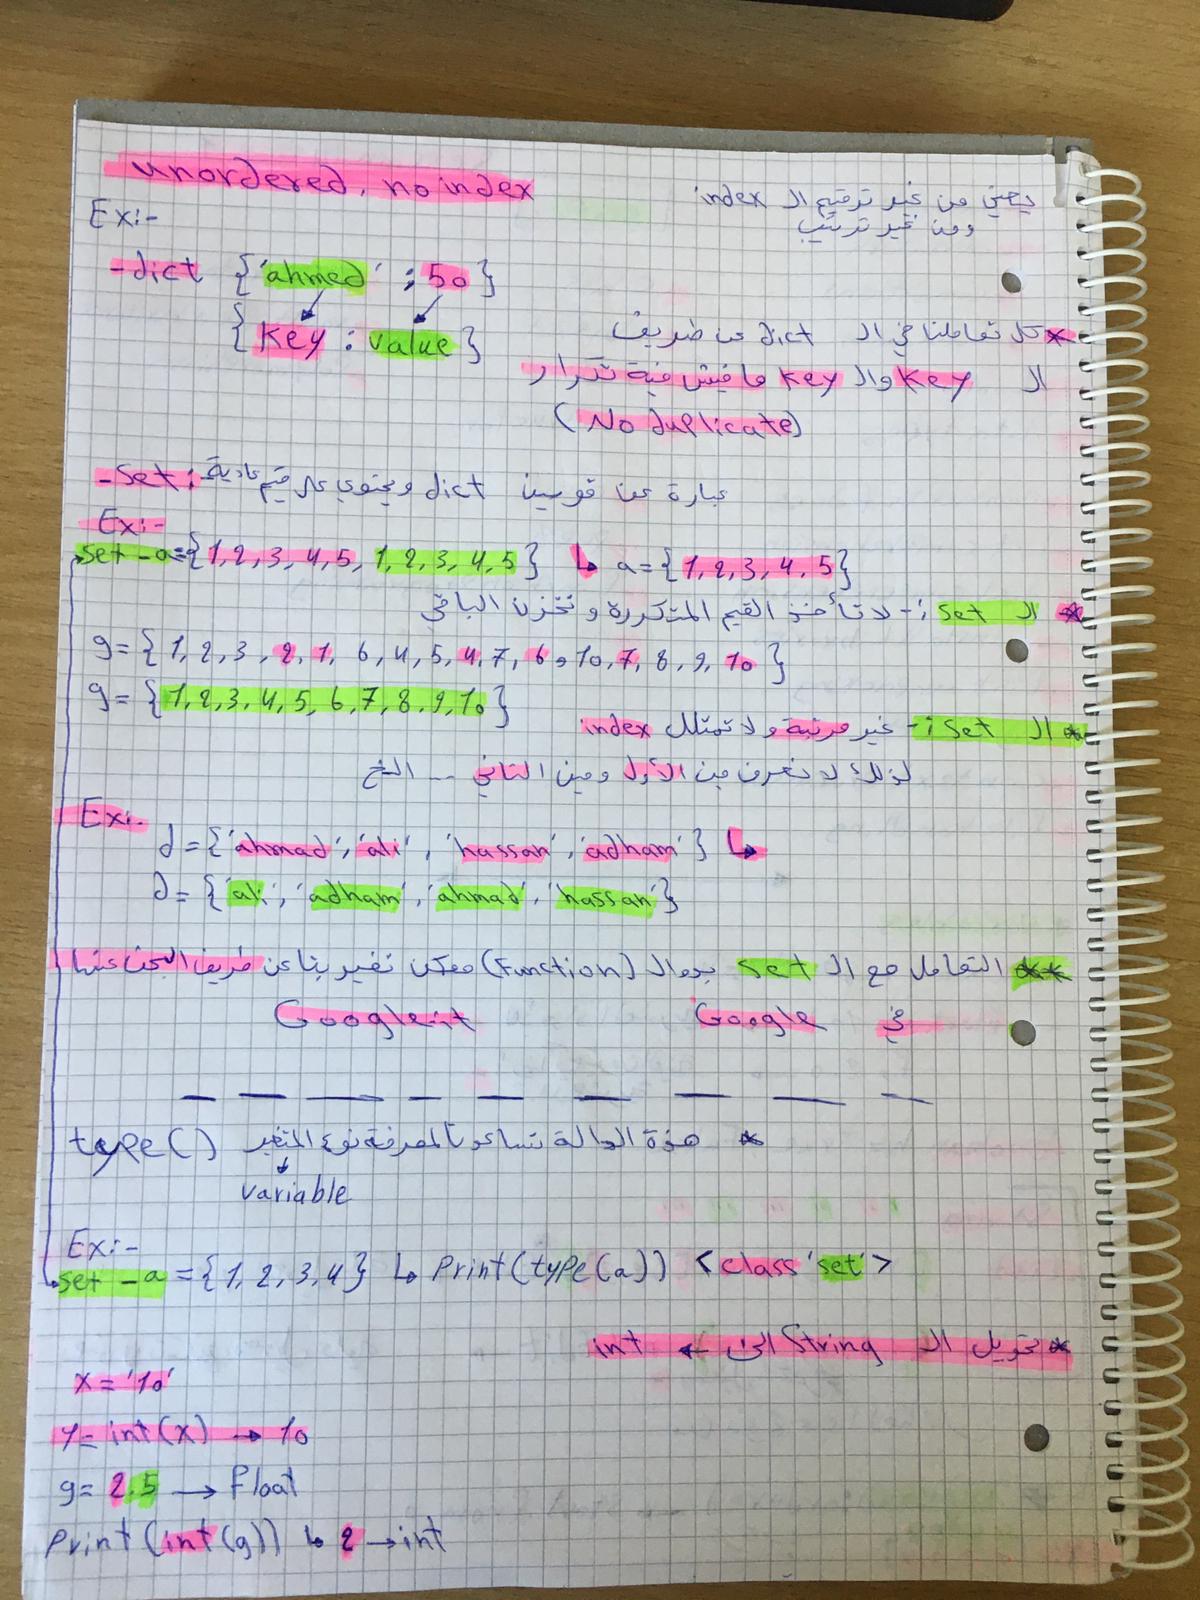 unordered, no index
يعني من غير ترقيم ال index
ومن غير ترتيب
Ex:-
-dict {'ahmed' : 50}
{key : value}
* كل تعاملنا في ال dict عن طريق
ال key وال key مافيش فية تكرار
(No duplicate)
-set:- عبارة عن قوسين dict ويحتوي على قيم عادية
Ex:-
set -a={1,2,3,4,5,1,2,3,4,5} ↳ a={1,2,3,4,5}
* ال set :- لا تأخذ القيم المتكررة وتخزن الباقي
g={1,2,3,2,1,6,4,5,4,7,6,10,7,8,9,10}
g={1,2,3,4,5,6,7,8,9,10}
* ال Set :- غير مرتبة ولا تمتلك index
لذلك لا نعرف مين الأول ومين التاني ... الخ
Ex:-
d={'ahmad','ali','hassan','adham'} ↳
d={'ali','adham','ahmad','hassan'}
** التعامل مع ال set بدوال (Function) ممكن تغير بتاعن طريق البحث عنها
في Google Google it
type() * هذة الدالة تساعدنا لمعرفة نوع المتغير
↓
variable
Ex:-
set -a={1,2,3,4} ↳ Print(type(a)) <class 'set'>
* تحويل ال String الى ← int
x='10'
y=int(x) → 10
g=2.5 → Float
Print(int(g)) ↳ 2 → int